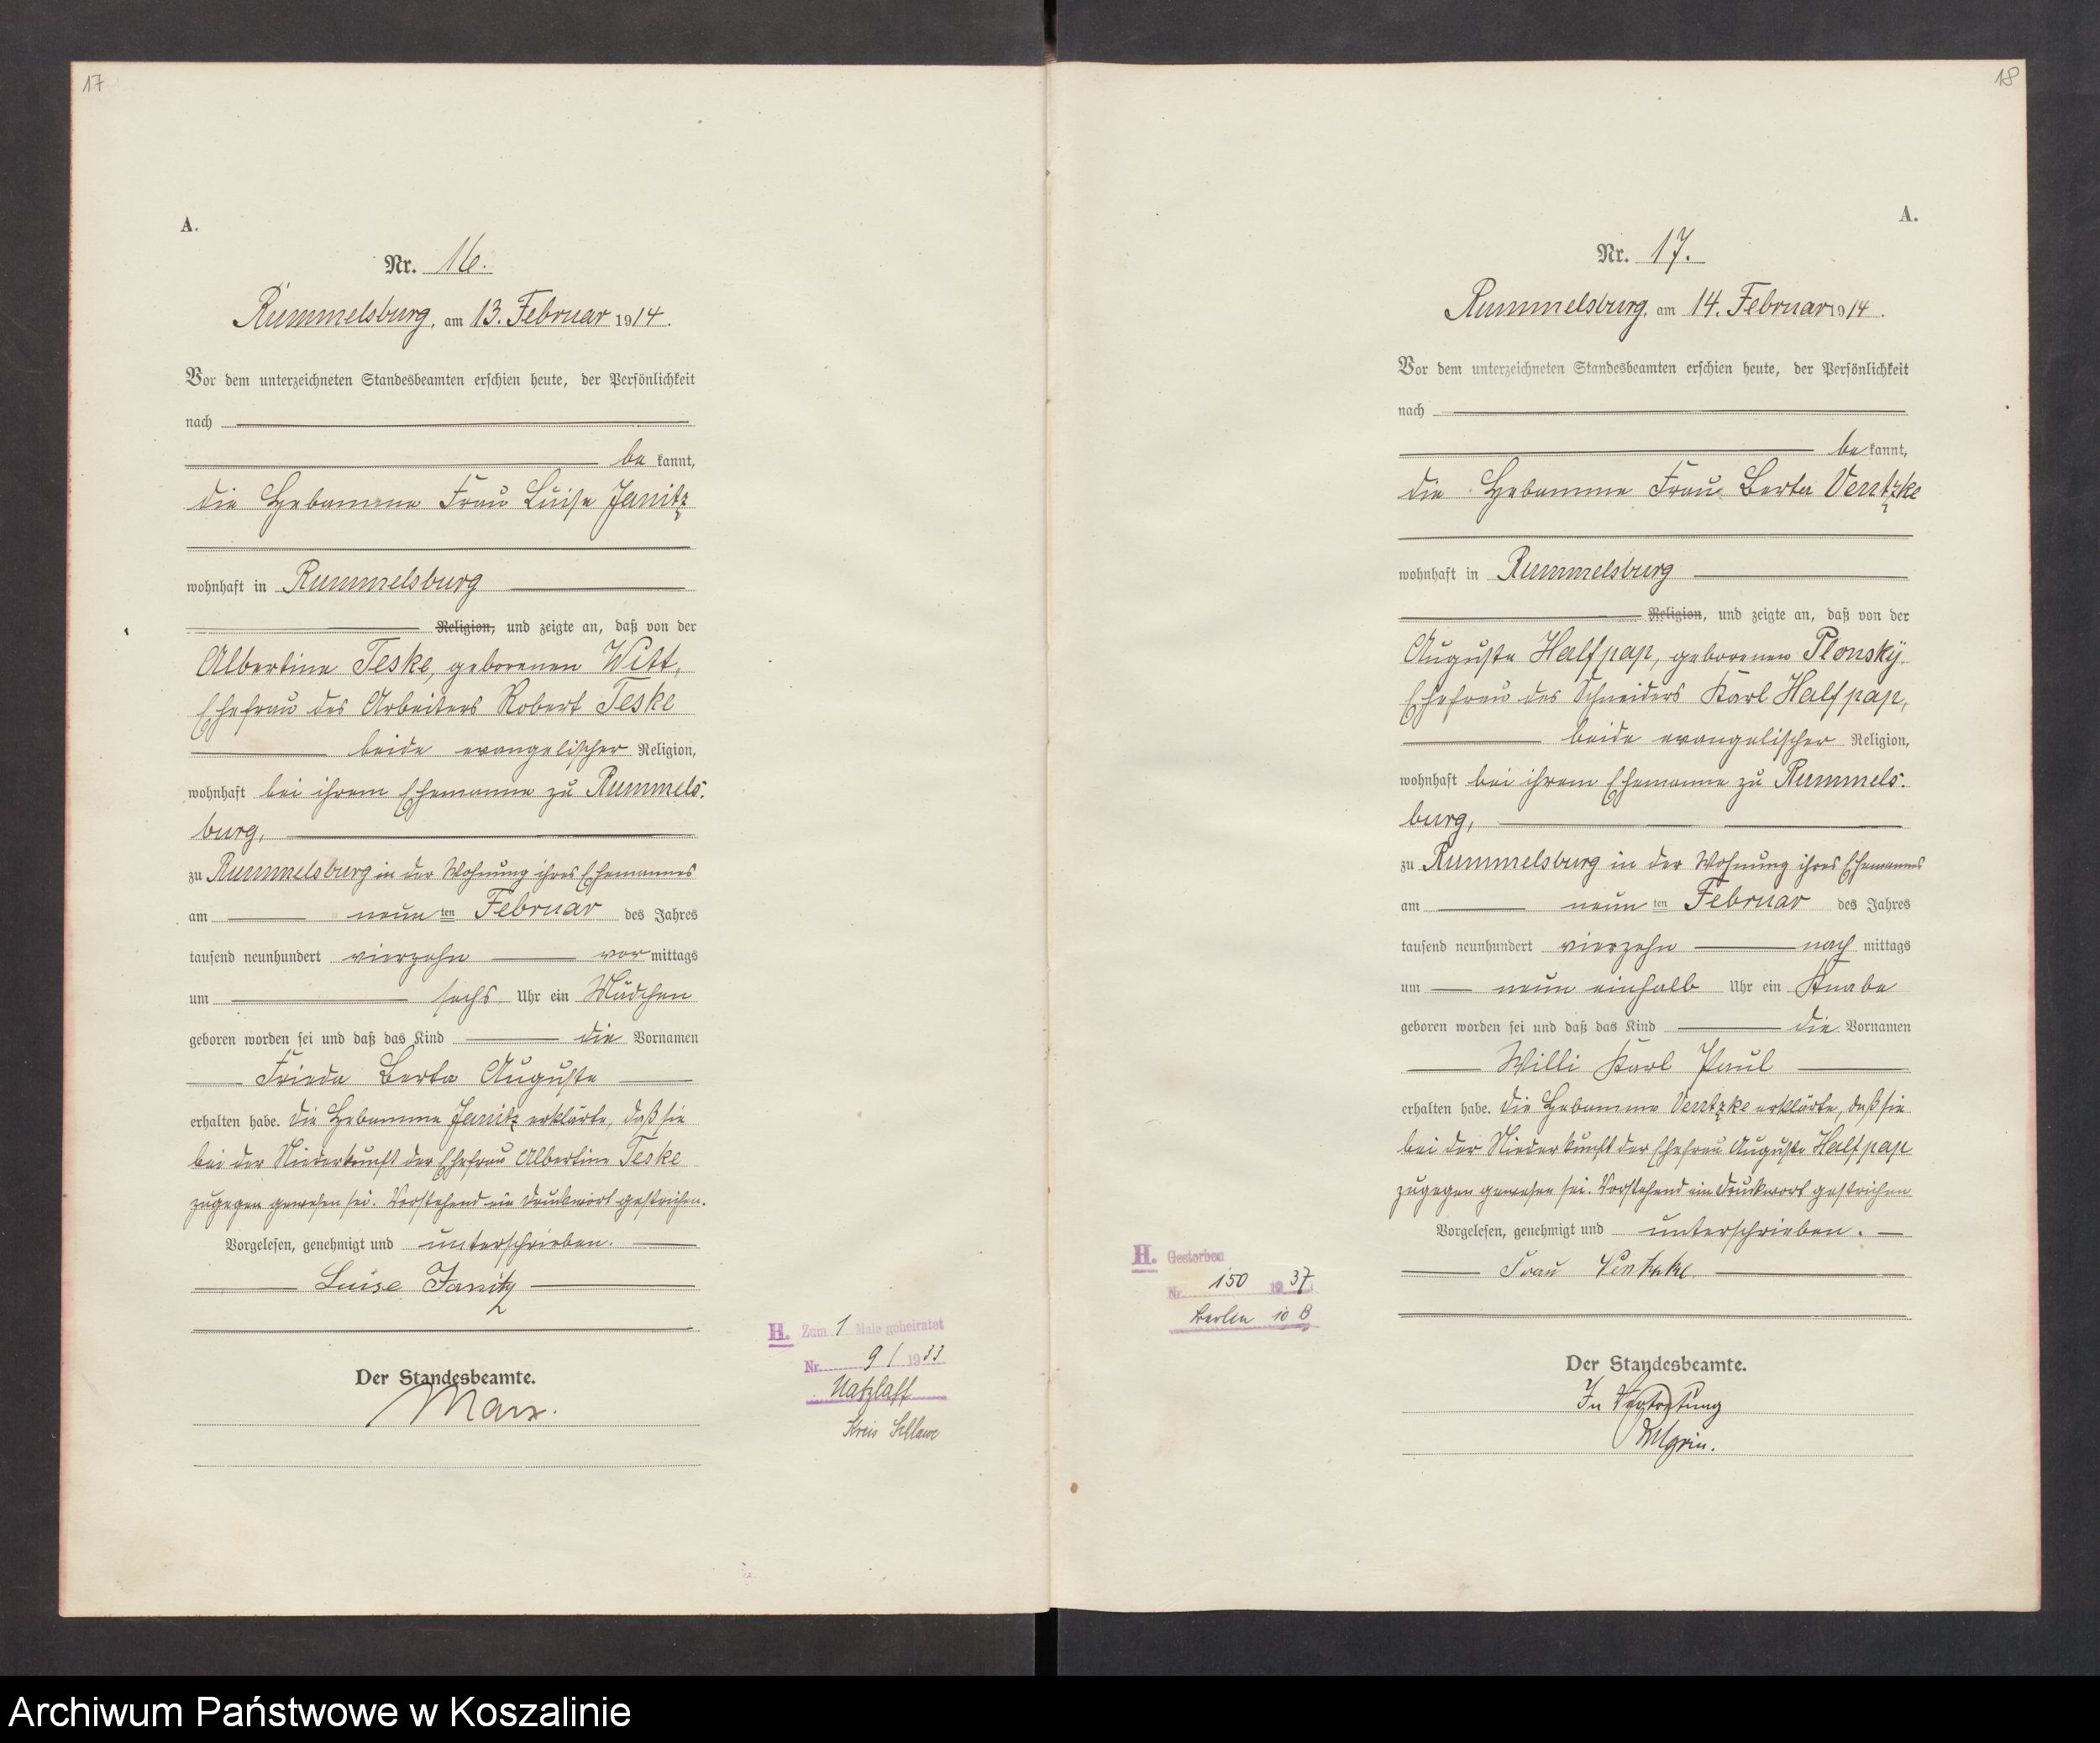 17
A.
Nr. 16.
Rummelsburg, am 13. Februar 1914.
Vor dem unterzeichneten Standesbeamten erschien heute, der Persönlichkeit
nach
be kannt,
die Hebamme Frau Luise Janitz
wohnhaft in Rummelsburg
Religion, und zeigte an, daß von der
Albertine Teske, geborenen Witt,
Ehefrau des Arbeiters Robert Teske
beide evangelischer Religion,
wohnhaft bei ihrem Ehemanne zu Rummels-
burg,
zu Rummelsburg in der Wohnung ihres Ehemannes
am neun ten Februar des Jahres
tausend neunhundert vierzehn vor mittags
um sechs Uhr ein Mädchen
geboren worden sei und daß das Kind die Vornamen
Frieda Berta Auguste
erhalten habe. Die Hebamme Janitz erklärte, daß sie
bei der Niederkunft der Ehefrau Albertine Teske
zugegen gewesen sei. Vorstehend ein Druckwort gestrichen.
Vorgelesen, genehmigt und unterschrieben.
Luise Janitz
Der Standesbeamte.
Marx.
H. Zum 1 Male geheiratet
Nr. 9 / 1933
Natzlaff
Kreis Schlawe
18
A.
Nr. 17.
Rummelsburg, am 14. Februar 1914.
Vor dem unterzeichneten Standesbeamten erschien heute, der Persönlichkeit
nach
be kannt,
die Hebamme Frau Berta Ventzke
wohnhaft in Rummelsburg
Religion, und zeigte an, daß von der
Auguste Halfpap, geborenen Plonsky
Ehefrau des Schneiders Karl Halfpap,
beide evangelischer Religion,
wohnhaft bei ihrem Ehemanne zu Rummels-
burg,
zu Rummelsburg in der Wohnung ihres Ehemannes
am neun ten Februar des Jahres
tausend neunhundert vierzehn nach mittags
um neun einhalb Uhr ein Knabe
geboren worden sei und daß das Kind die Vornamen
Willi Karl Paul
erhalten habe. Die Hebamme Ventzke erklärte, daß sie
bei der Niederkunft der Ehefrau Auguste Halfpap
zugegen gewesen sei. Vorstehend ein Druckwort gestrichen
Vorgelesen, genehmigt und unterschrieben.
Frau Ventzke
H. Gestorben
Nr. 150 1937
Berlin 10 B
Der Standesbeamte.
In Vertretung
Archiwum Państwowe w Koszalinie